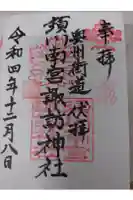 奉拝
奥州街道
伏拝
須川南宮諏訪神社
令和四年十二月八日